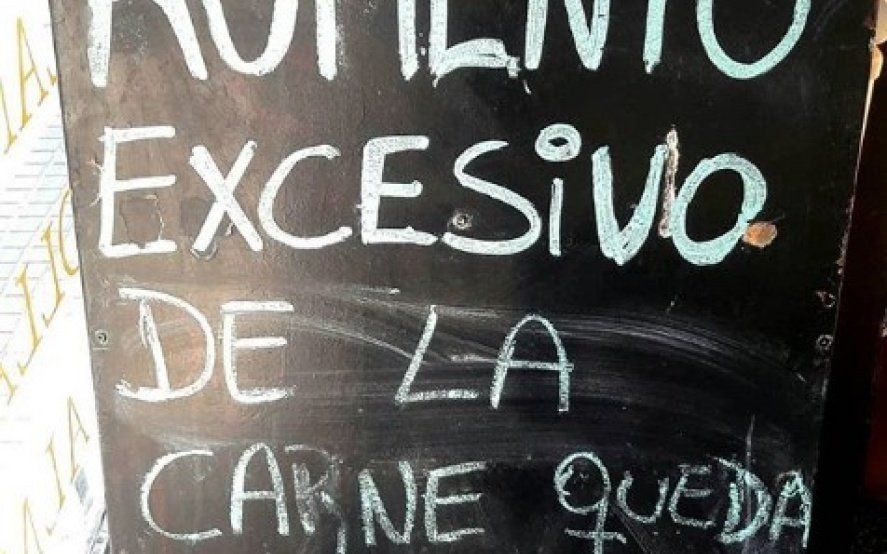 AUMENTO
EXCESiVO
DE LA
CARNE QUEDA